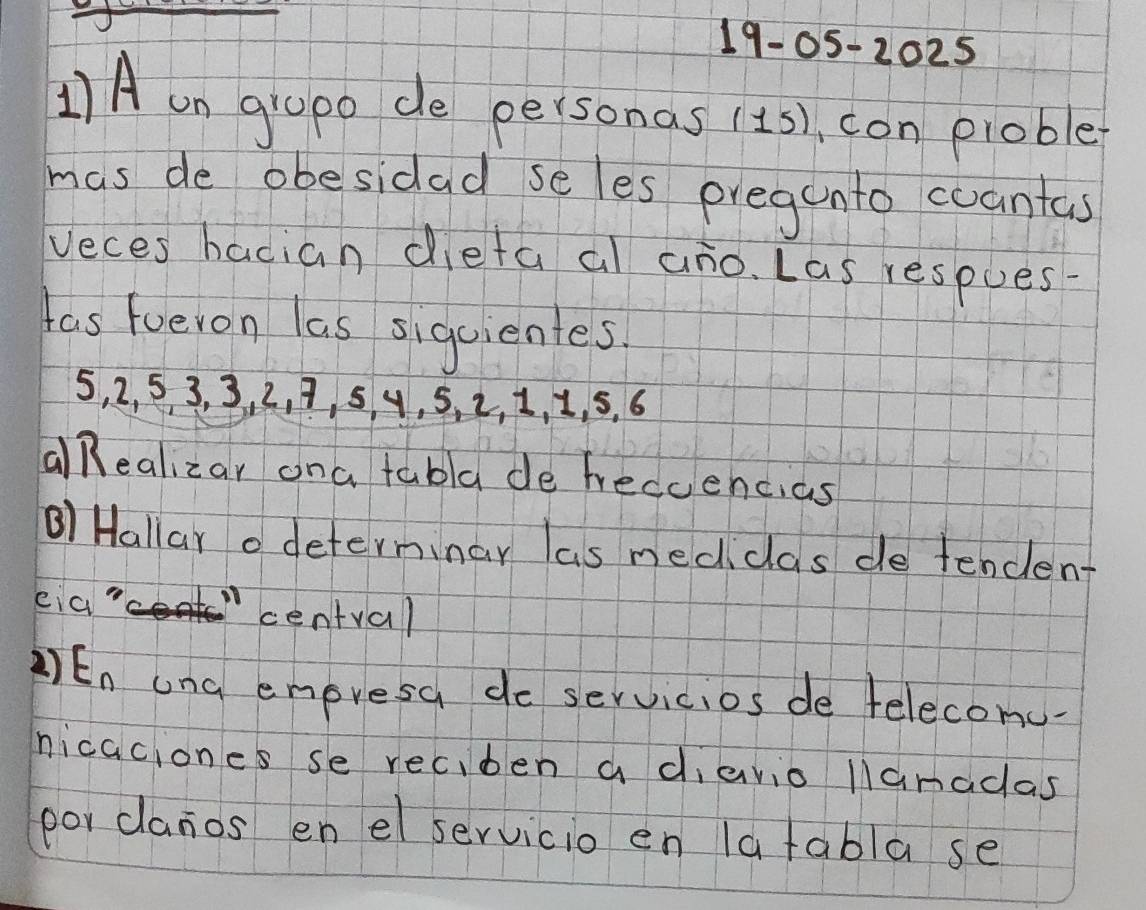 19-05-2025
1) A un grupo de personas (15), con proble-
mas de obesidad se les pregunto cuantas
veces hacian dieta al año. Las respues-
tas fueron las siguientes.
5,2,5,3,3,2,7,5,4,5,2,1,1,5,6
a) Realizar una tabla de frecuencias
B) Hallar o determinar las medidas de tenden-
cia "" central
2) En una empresa de servicios de telecomu-
nicaciones se reciben a diario llamadas
por daños en el servicio en la tabla se